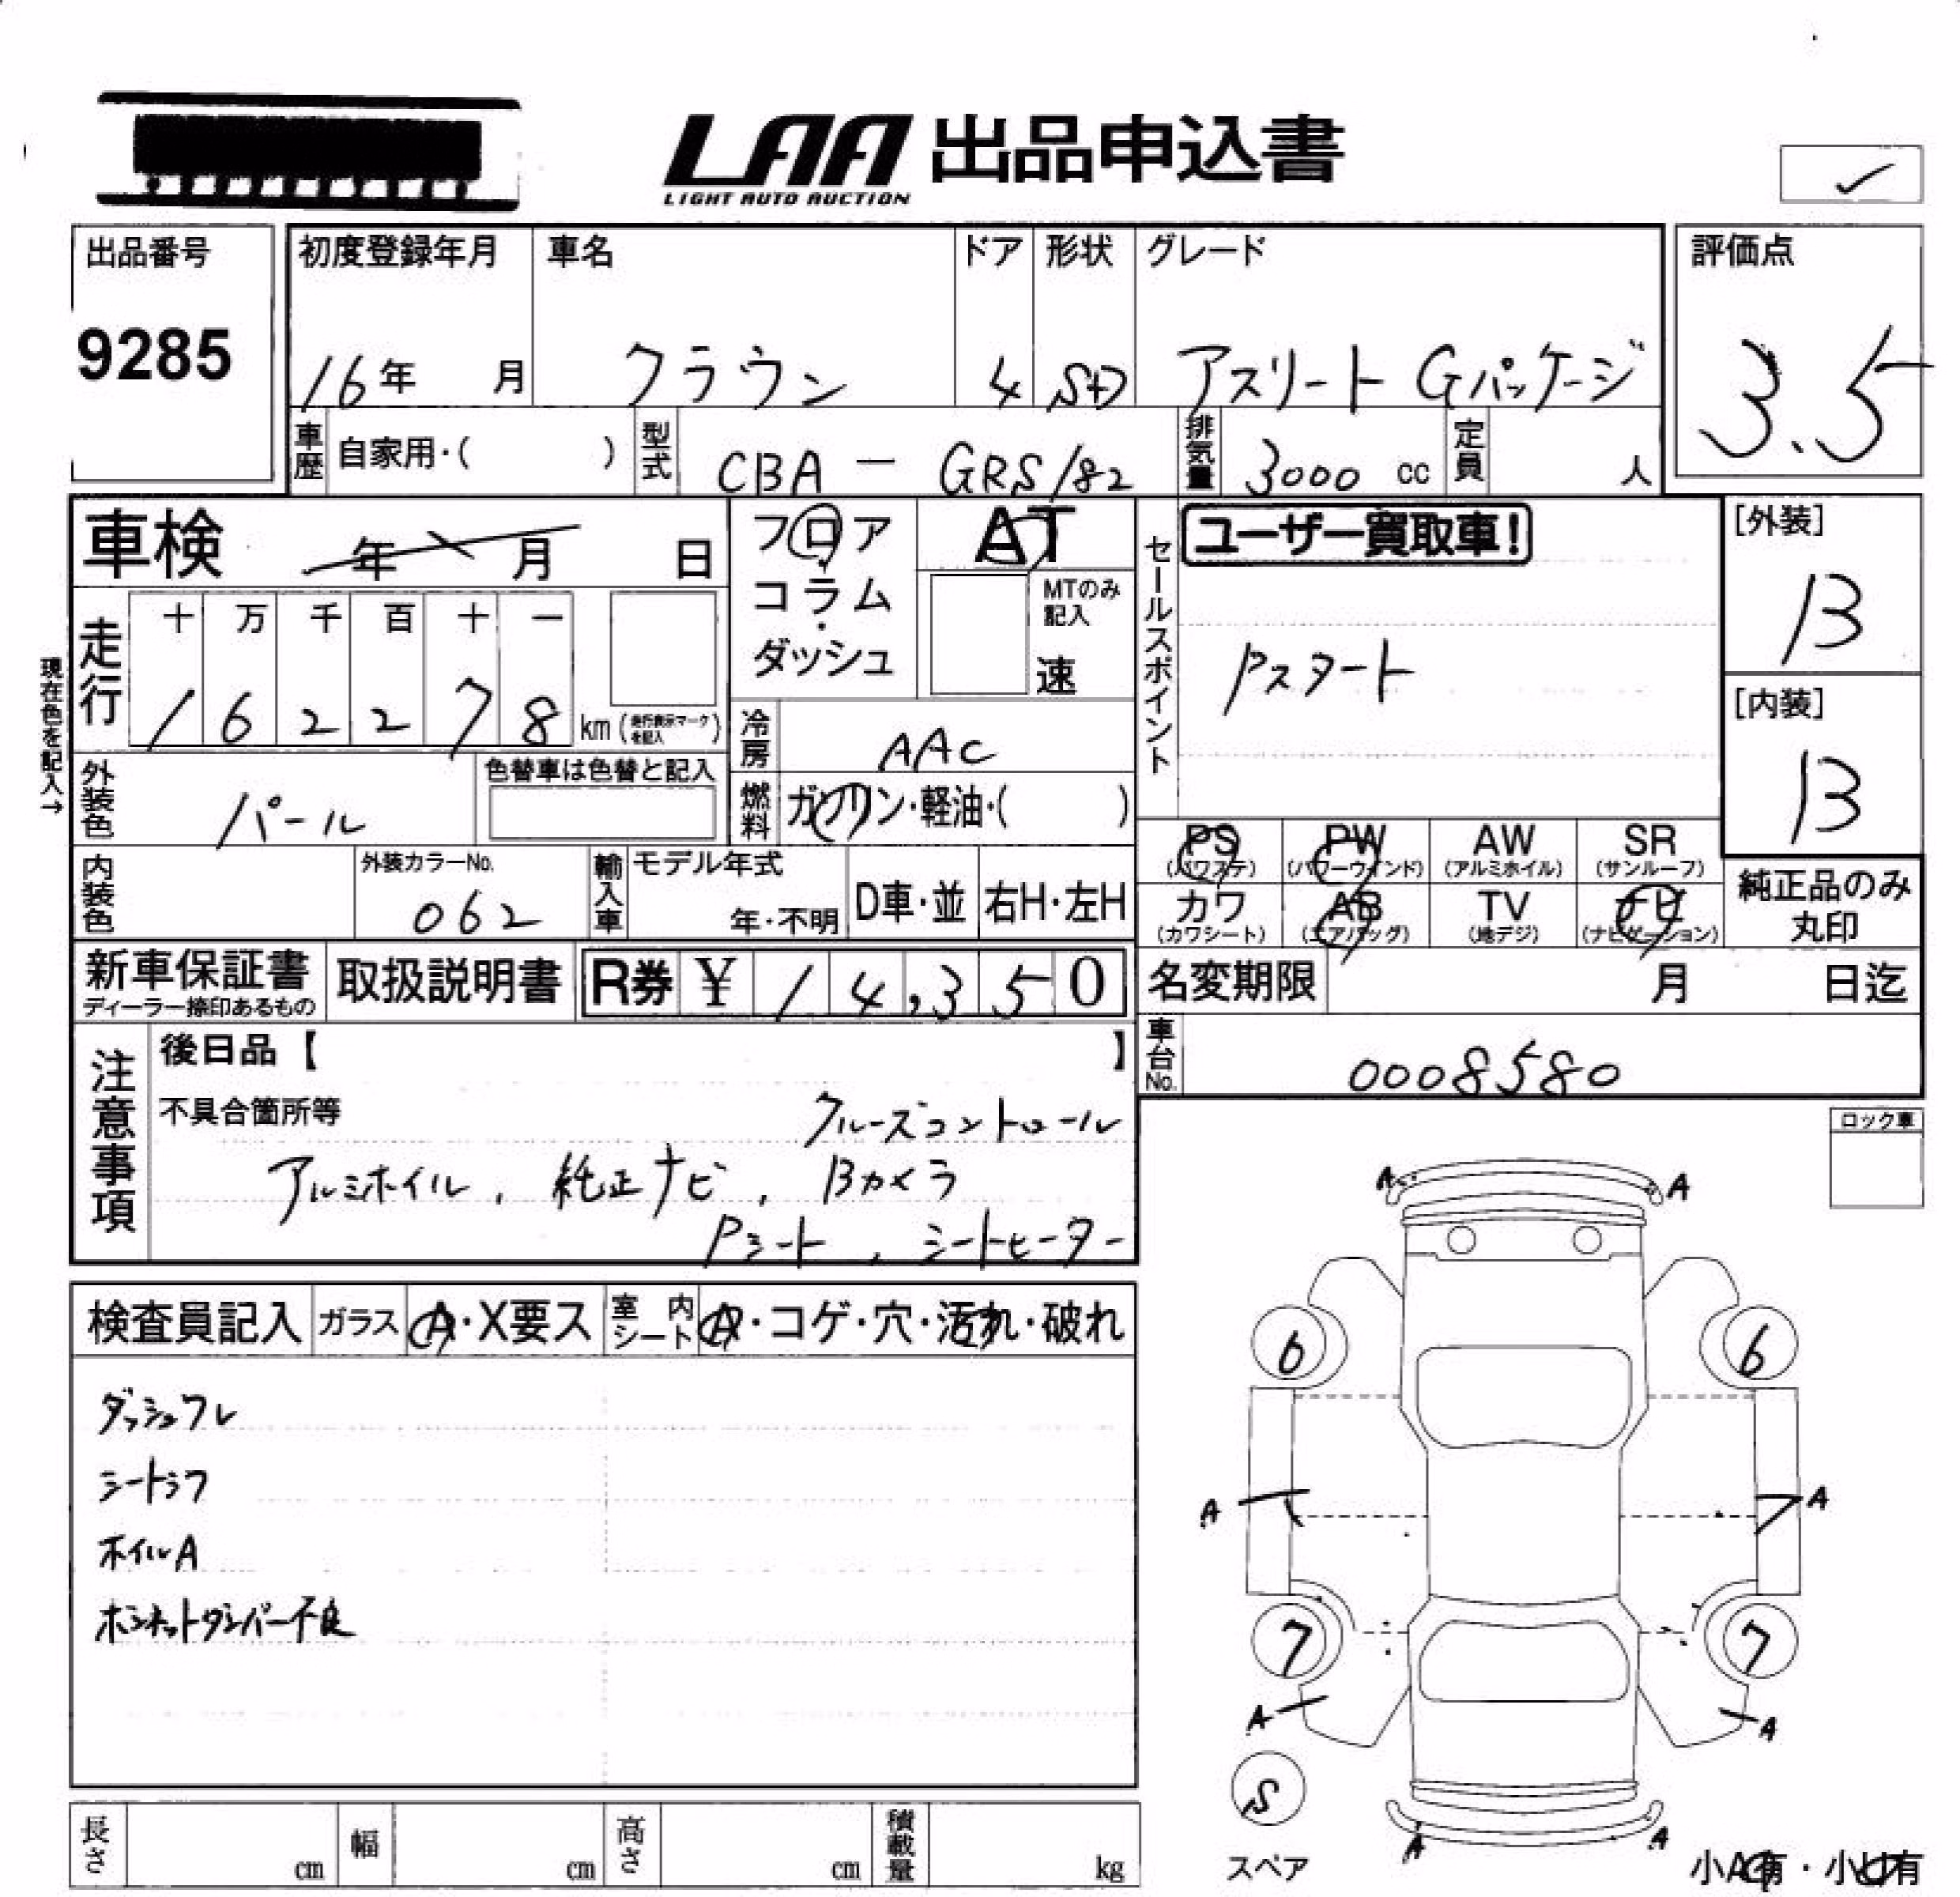 LAA 出品申込書
LIGHT AUTO AUCTION
出品番号 初度登録年月 車名 ドア 形状 グレード 評価点
9285 16年 月 クラウン 4 SD アスリート Gパッケージ 3.5
車歴 自家用・( ) 型式 CBA − GRS182 排気量 3000 cc 定員 人
車検 年 月 日 フロア AT セールスポイント ユーザー買取車! [外装]
コラム MTのみ記入 B
ダッシュ 速 Pスタート
現在色を記入→
走行 十 万 千 百 十 一
1 6 2 2 7 8 km (走行表示マークを記入)
[内装]
B
冷房 AAC
外装色 パール 色替車は色替と記入 燃料 ガソリン・軽油・( )
PS PW AW SR
(パワステ) (パワーウインド) (アルミホイル) (サンルーフ)
内装色 外装カラーNo. 062 輸入車 モデル年式 年・不明 D車・並 右H・左H
カワ AB TV ナビ
(カワシート) (エアバッグ) (地デジ) (ナビゲーション)
純正品のみ
丸印
新車保証書 取扱説明書 R券 ¥ 14,350 名変期限 月 日迄
ディーラー捺印あるもの
車台No. 0008580
注意事項 後日品【 】
不具合箇所等 クルーズコントロール
アルミホイル, 純正ナビ, Bカメラ
Pシート, シートヒーター
ロック車
検査員記入 ガラス A・X要ス 室内シート A・コゲ・穴・汚れ・破れ
ダッシュワレ
シートシワ
ホイルA
ボンネットダンパー不良
A A
6 6
A A
7 7
A A
S
スペア
A A
小A有・小U有
長さ cm 幅 cm 高さ cm 積載量 kg